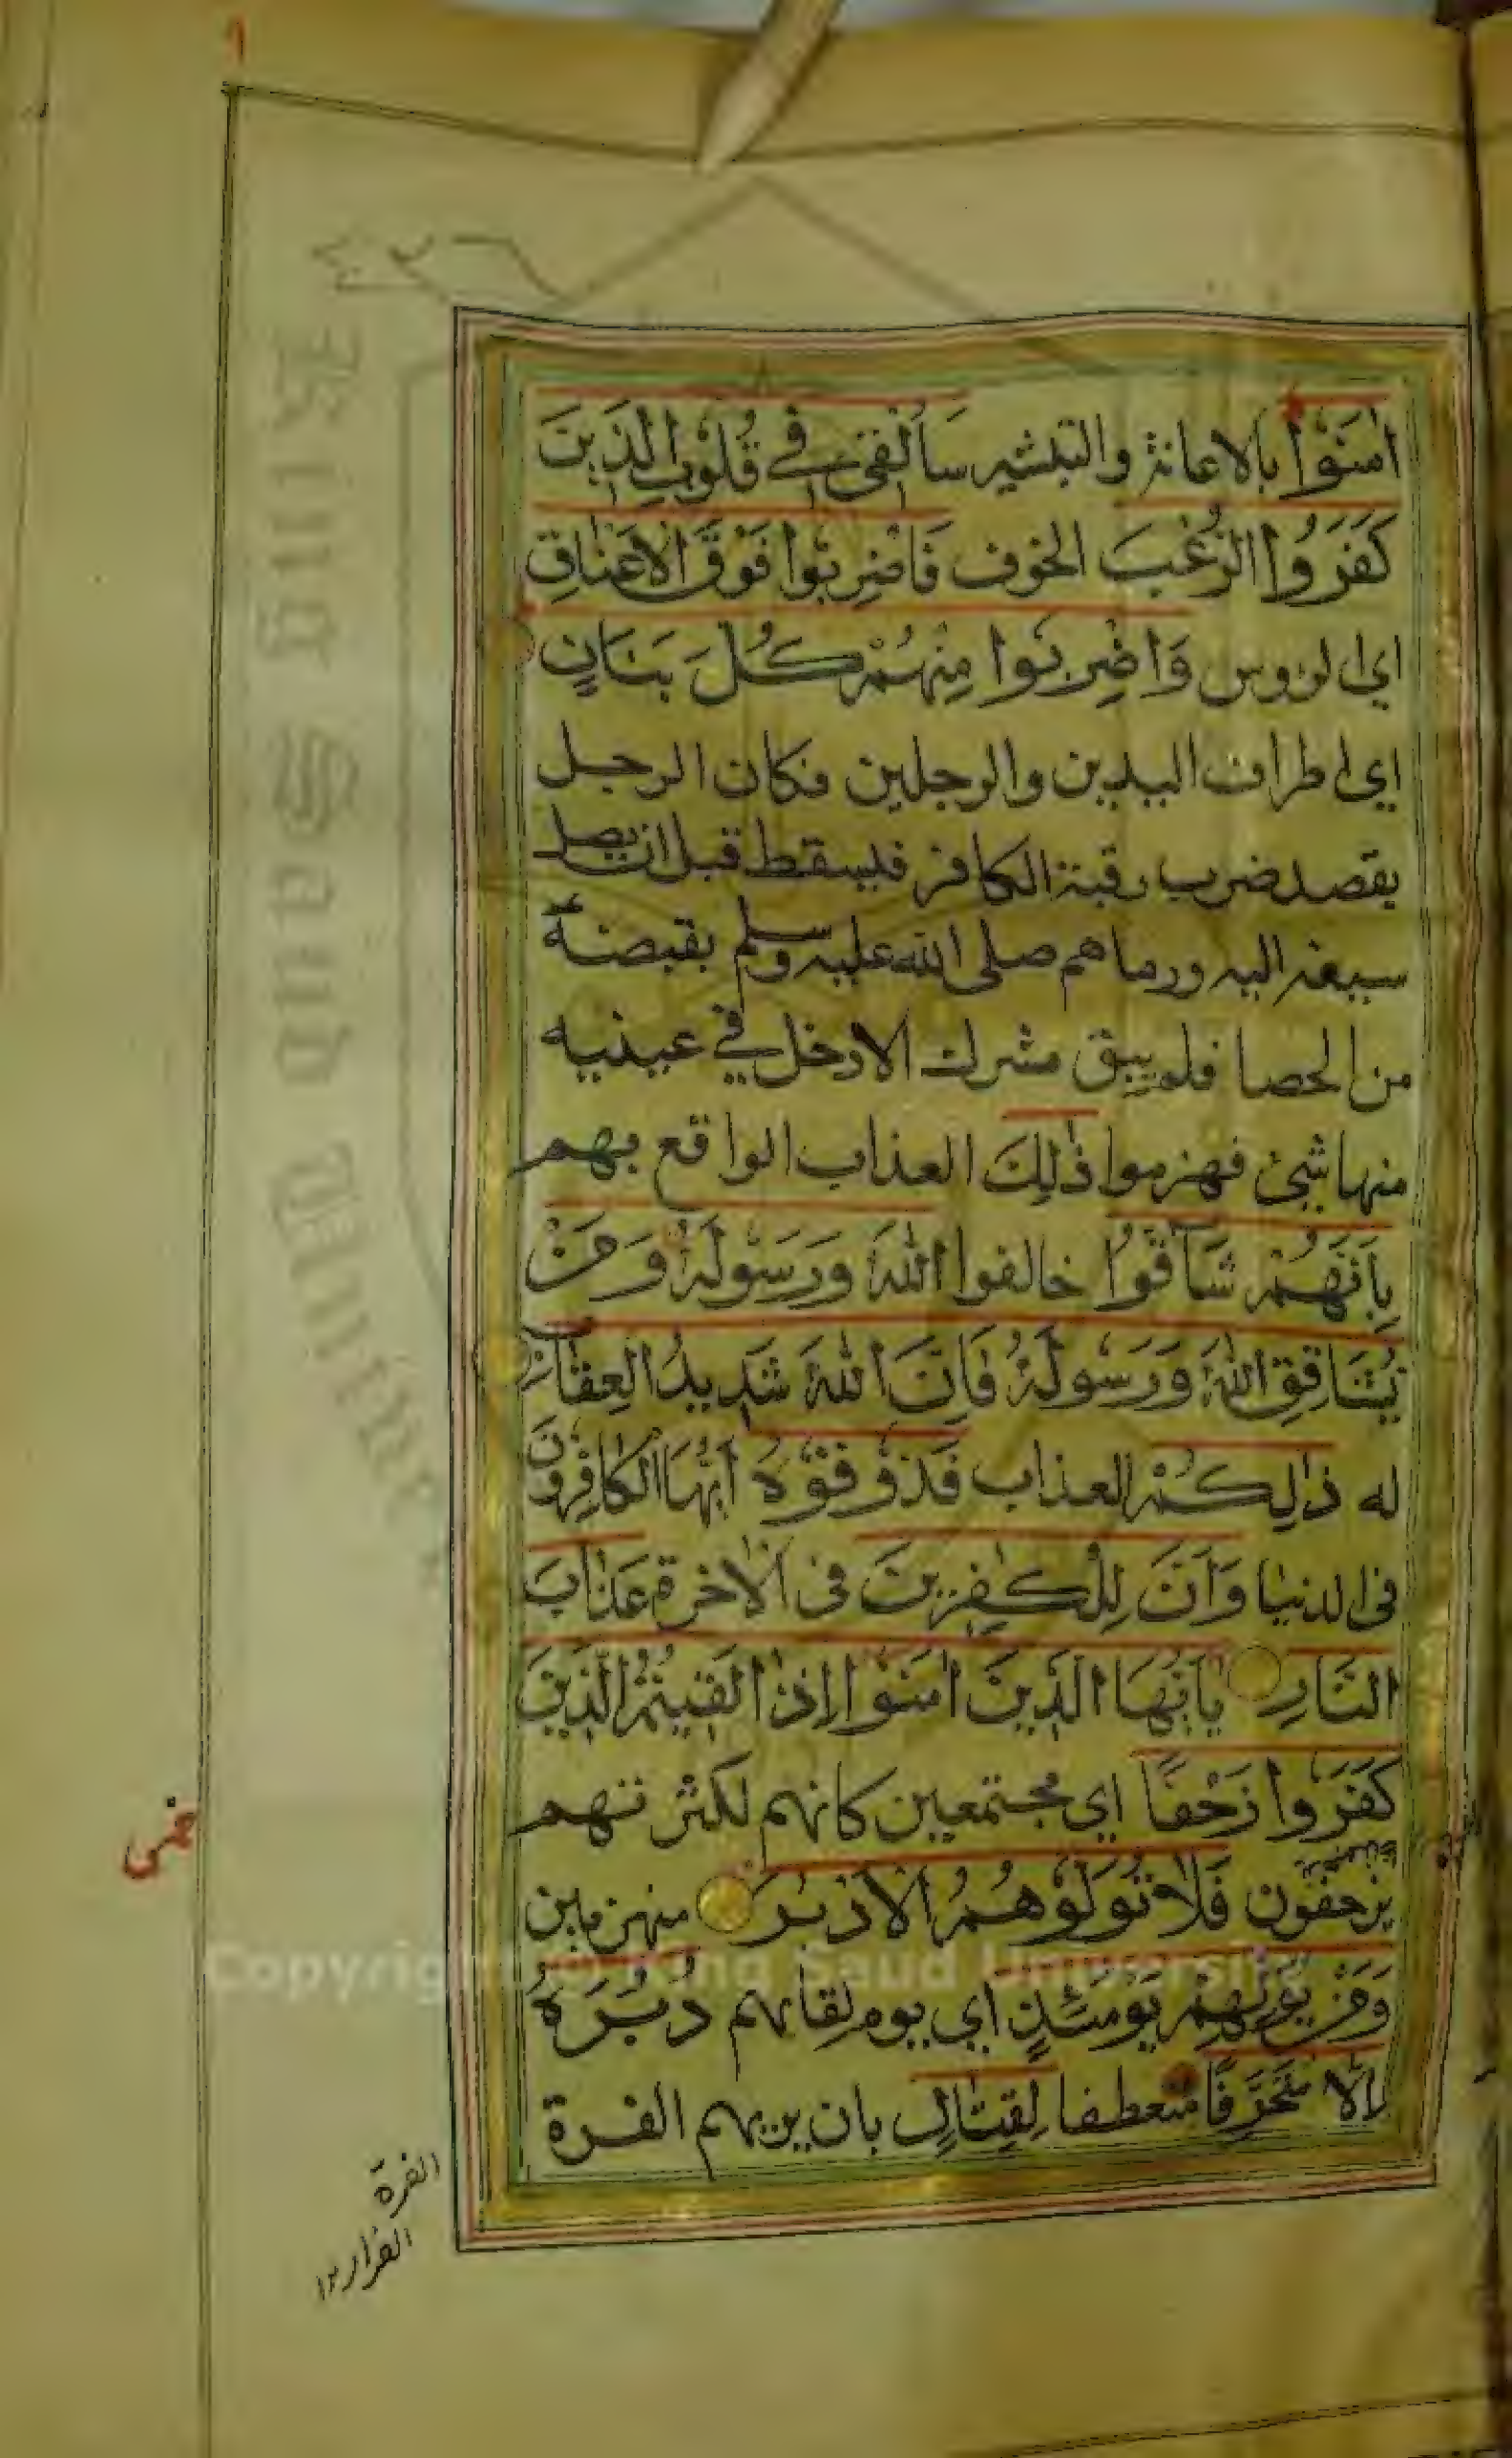 اٰمَنُوْا بالاعانة والتبشير سَاُلْقِىْ فِىْ قُلُوْبِ الَّذِيْنَ
كَفَرُوا الرُّعْبَ الخوف فَاضْرِبُوْا فَوْقَ الْاَعْنَاقِ
اي الروس وَاضْرِبُوْا مِنْهُمْ كُلَّ بَنَانٍ
اي اطراف اليدين والرجلين فكان الرجل
يقصد ضرب رقبة الكافر فيسقط قبل ان يصل
سيفه اليه ورماهم صلى الله عليه وسلم بقبضة
من الحصا فلم يبق مشرك الا دخل في عينيه
منها شئ فهزموا ذٰلِكَ العذاب الواقع بهم
بِاَنَّهُمْ شَاقُّوْا خالفوا اللّٰهَ وَرَسُوْلَهٗ وَمَنْ
يُّشَاقِقِ اللّٰهَ وَرَسُوْلَهٗ فَاِنَّ اللّٰهَ شَدِيْدُ الْعِقَابِ
له ذٰلِكُمْ العذاب فَذُوْقُوْهُ اَيُّهَا الكَافِرُوْنَ
فى الدنيا وَاَنَّ لِلْكٰفِرِيْنَ فى الاخرة عَذَابَ
النَّارِ يٰاَيُّهَا الَّذِيْنَ اٰمَنُوْا اِذَا لَقِيْتُمُ الَّذِيْنَ
كَفَرُوْا زَحْفًا اي مجتمعين كانهم لكثرتهم
يزحفون فَلَا تُوَلُّوْهُمُ الْاَدْبٰرَ منهزمين
وَمَنْ يُّوَلِّهِمْ يَوْمَئِذٍ اي يوم لقائهم دُبُرَهٗ
اِلَّا مُتَحَرِّفًا منعطفا لِّقِتَالٍ بان يريهم الفرة
الفرة
الفرار ١٢
Copyright © King Saud University
King Saud University